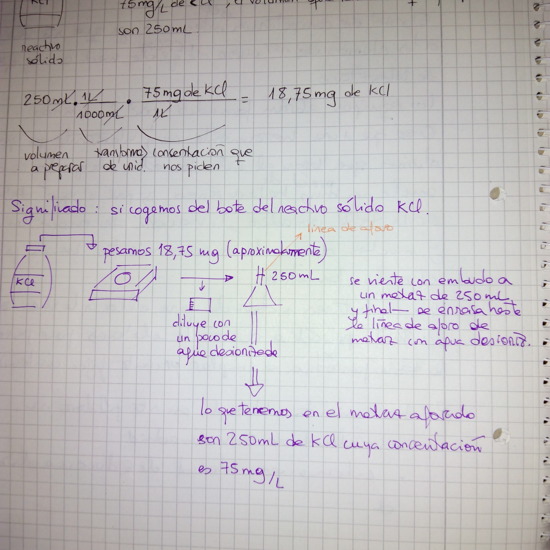 KCl
75mg/L de KCl
son 250mL
reactivo
sólido
250mL . 1L/1000mL . 75mg de KCl/1L = 18,75mg de KCl
volumen
a preparar
cambio
de unid.
concentración que
nos piden
Significado: si cogemos del bote del reactivo sólido KCl.
línea de aforo
pesamos 18,75 mg (aproximadamente)
KCl
250mL
diluye con
un poco de
agua desionizada
se vierte con embudo a
un matraz de 250mL
y final— se enrasa hasta
la línea de aforo de
matraz con agua desioniz.
lo que tenemos en el matraz aforado
son 250mL de KCl cuya concentración
es 75mg/L